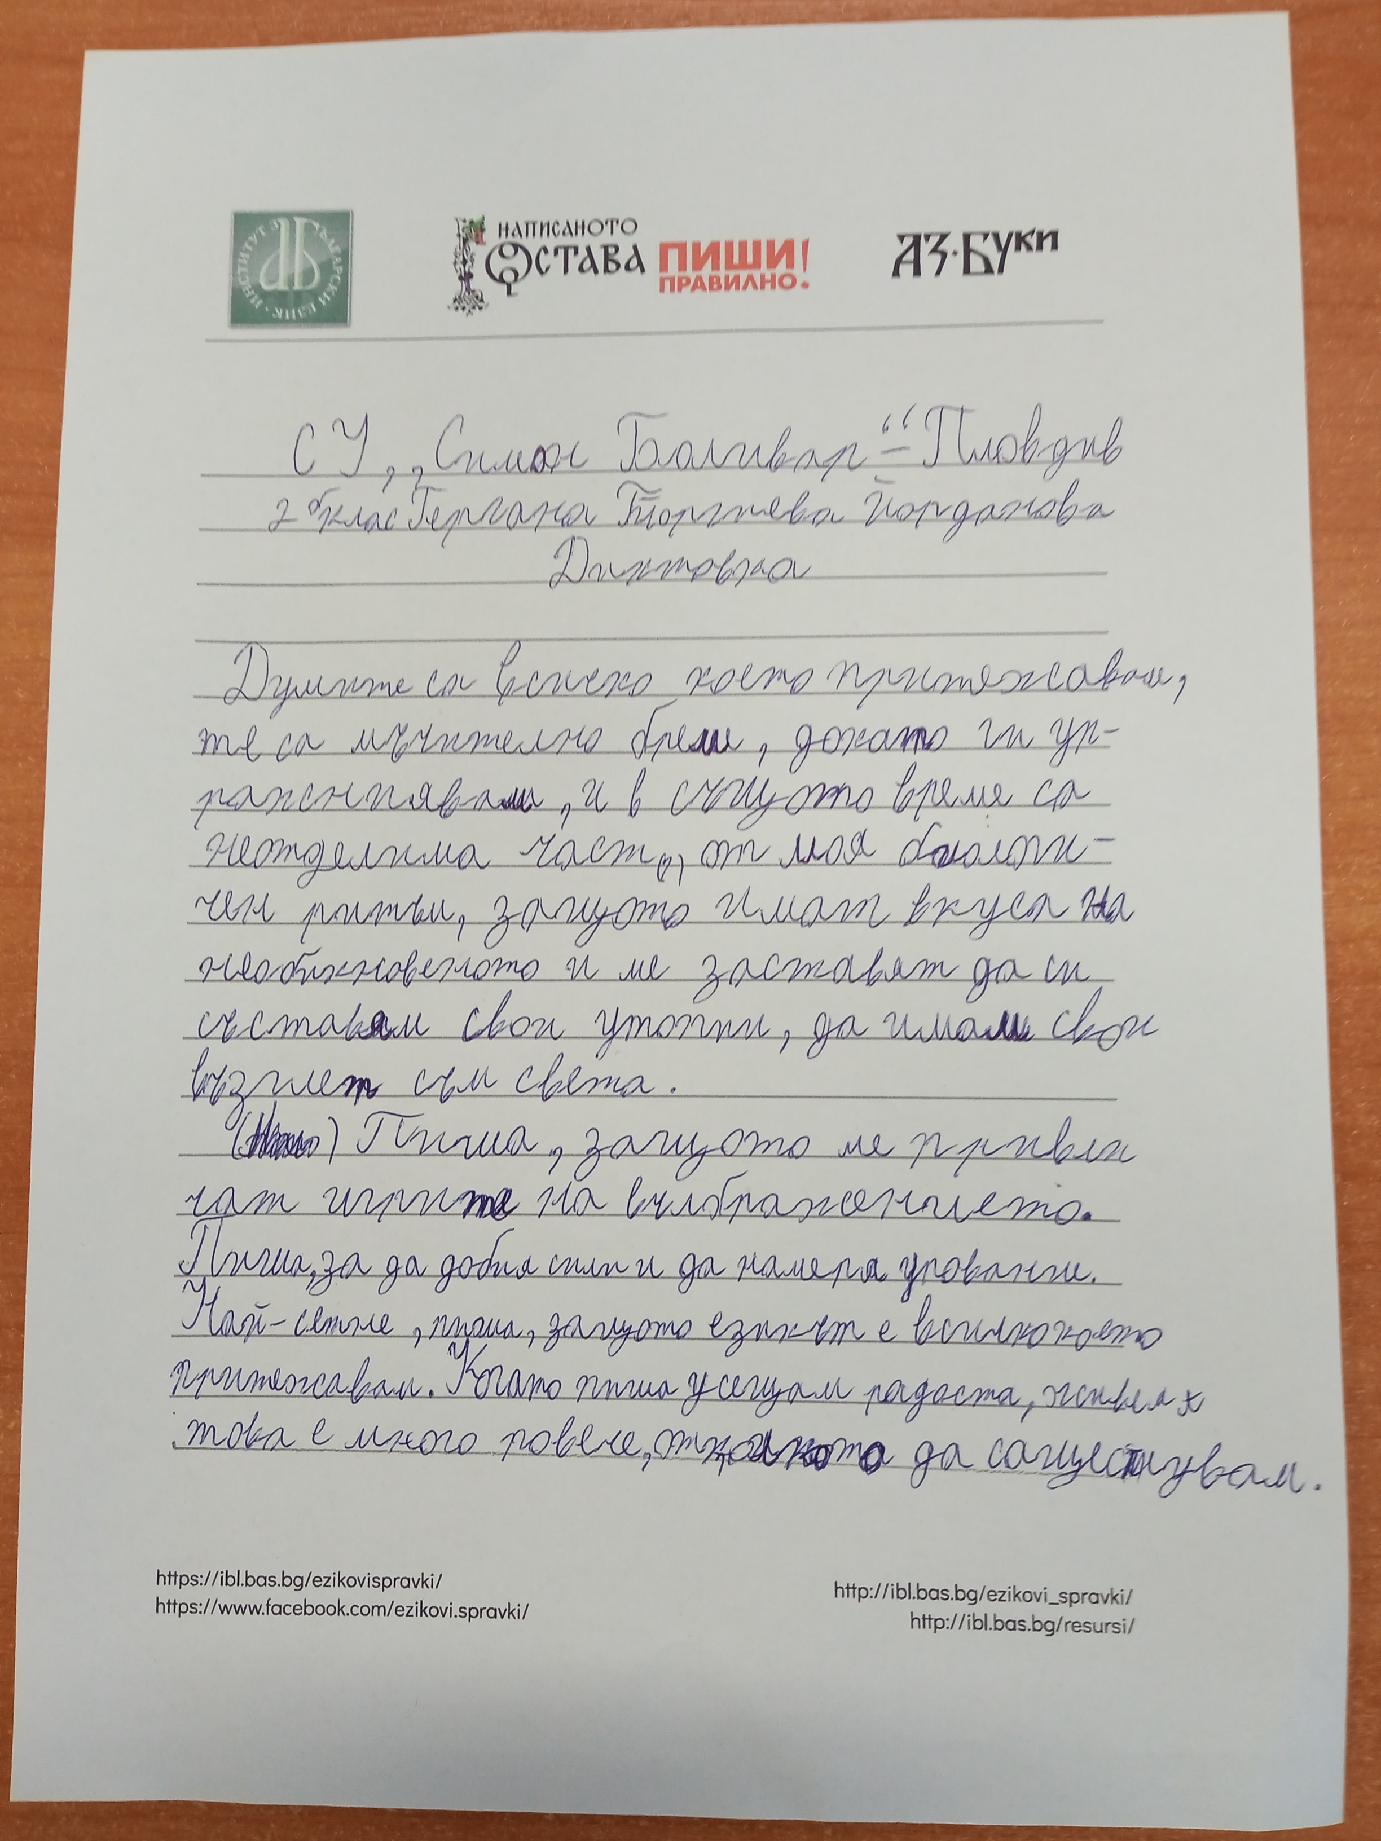 ИНСТИТУТ ЗА БЪЛГАРСКИ ЕЗИК
НАПИСАНОТО
ОСТАВА ПИШИ!
ПРАВИЛНО.
АЗ·БУКИ
СУ ,,Симон Боливар“ – Пловдив
2 б клас Гергана Георгиева Йорданова
Диктовка
Думите са всичко което притяжавам,
те са мъчително бреме, докато ги уп-
ражнявам, и в същото време са
неотделима част, от моя биологи-
чен ритъм, защото имат вкуса на
необикновеното и ме заставят да си
съставям свои утопии, да имам свой
възглет съм света.
Пиша, защото ме привли
чат игрите на въображението.
Пиша, за да добия сили и да намеря упование.
Най-сетне, пиша, защото езикът е всичко което
притежавам. Когато пиша усещам радоста, живея х
това е много повече, отколкото да саществувам.
https://ibl.bas.bg/ezikovispravki/
https://www.facebook.com/ezikovi.spravki/
http://ibl.bas.bg/ezikovi_spravki/
http://ibl.bas.bg/resursi/